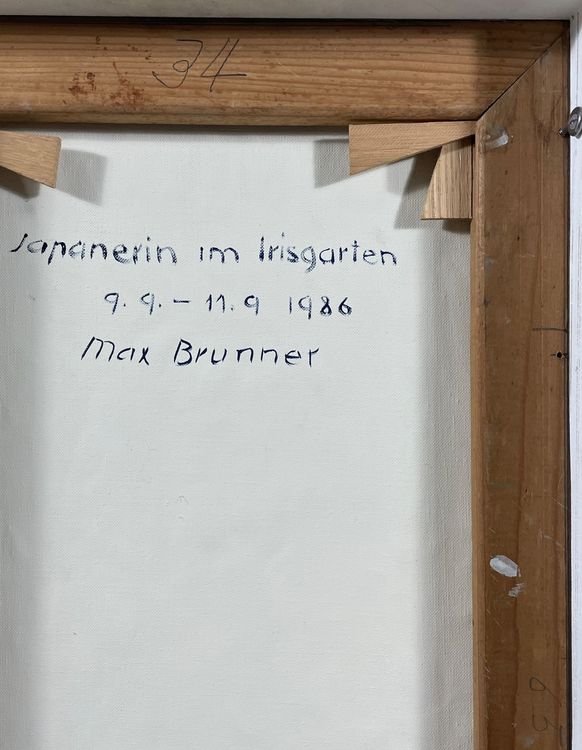 34
Japanerin im Irisgarten
9. 9. – 11. 9 1986
Max Brunner
63